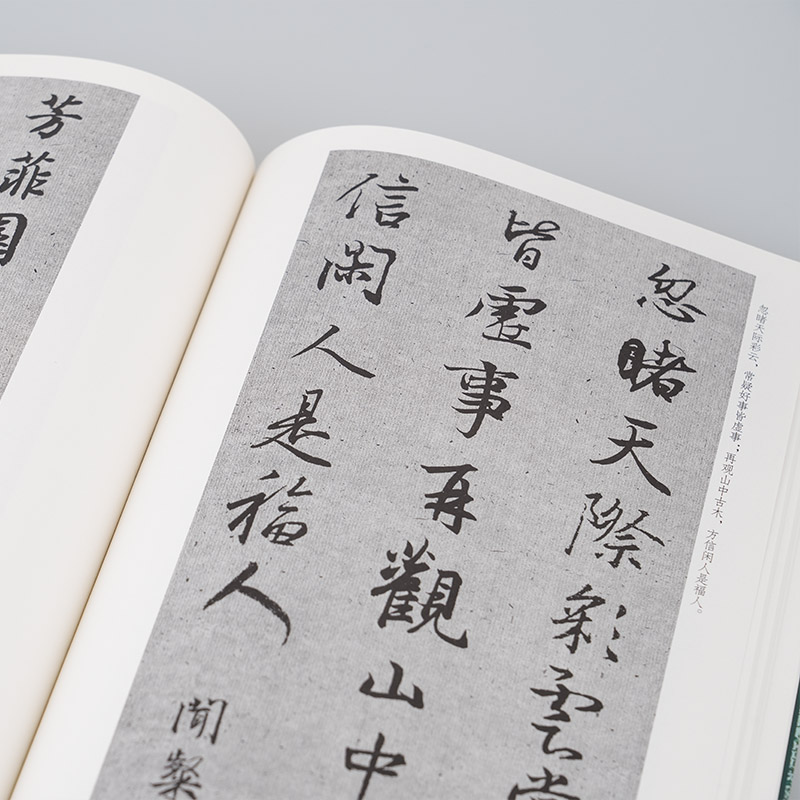 忽睹天际彩云，常疑好事皆虚事；再观山中古木，方信闲人是福人。
忽睹天際彩雲常
皆虛事再觀山中
信閑人是福人
聞
芳菲